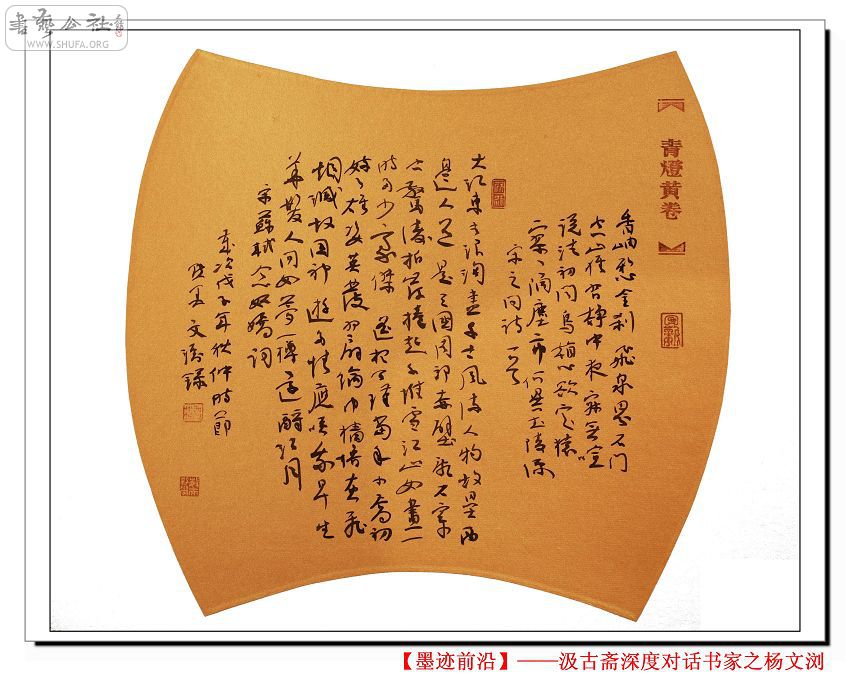 書藝公社
WWW.SHUFA.ORG
青燈黃卷
香岫懸金刹 飛泉界石門
空山唯習靜中夜寂無喧
說法初聞鳥看心欲定猿
寥寥隔塵市何異武陵源
宋之問詩一首
大江東去浪淘盡千古風流人物故壘西
邊人道是三國周郎赤壁亂石穿
空驚濤拍岸捲起千堆雪江山如畫一
時多少豪傑 遙想公瑾當年小喬初
嫁了雄姿英發羽扇綸巾檣櫓灰飛
烟滅故國神遊多情應笑我早生
華髮人間如夢一樽還酹江月
宋蘇軾念奴嬌詞
歲次戊子年秋仲時節
文浏錄
【墨迹前沿】——汲古斋深度对话书家之杨文浏